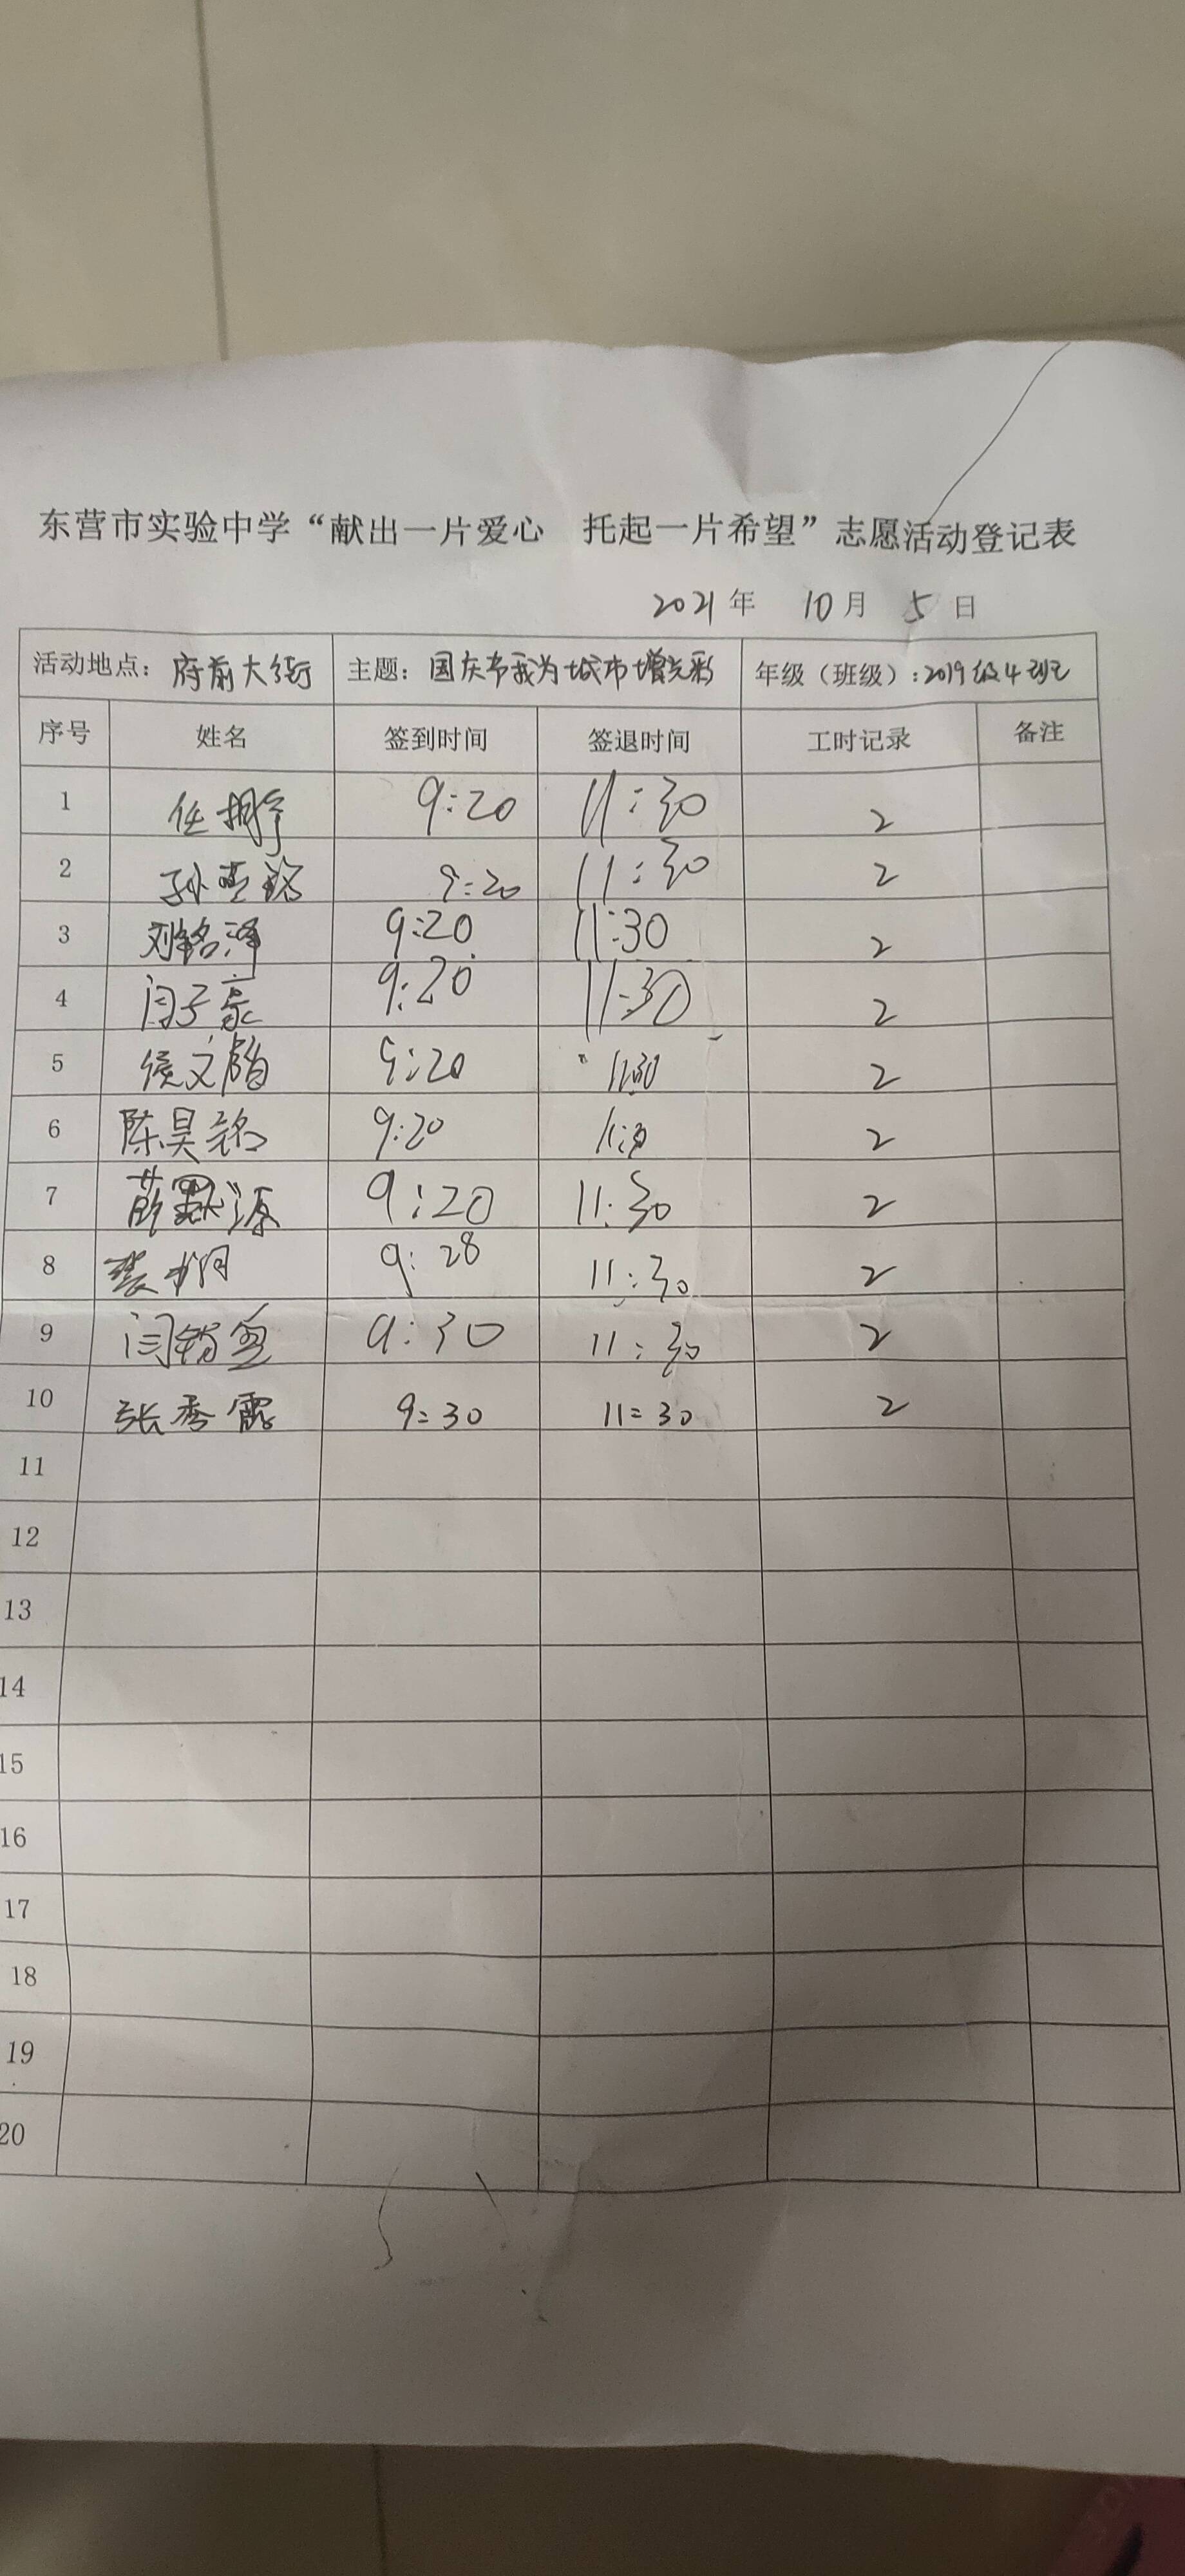 东营市实验中学“献出一片爱心 托起一片希望”志愿活动登记表
2021年 10月 5日
活动地点：府前大街 主题：国庆节我为城市增光彩 年级（班级）：2019级4班
序号 姓名 签到时间 签退时间 工时记录 备注
1 任 9:20 11:30 2
2 孙 9:20 11:30 2
3 刘铭泽 9:20 11:30 2
4 闫子豪 9:20 11:30 2
5 侯文 9:20 11:30 2
6 陈昊铭 9:20 11:30 2
7 薛默涵 9:20 11:30 2
8 9:28 11:30 2
9 闫 9:30 11:30 2
10 张秀霞 9:30 11:30 2
11
12
13
14
15
16
17
18
19
20